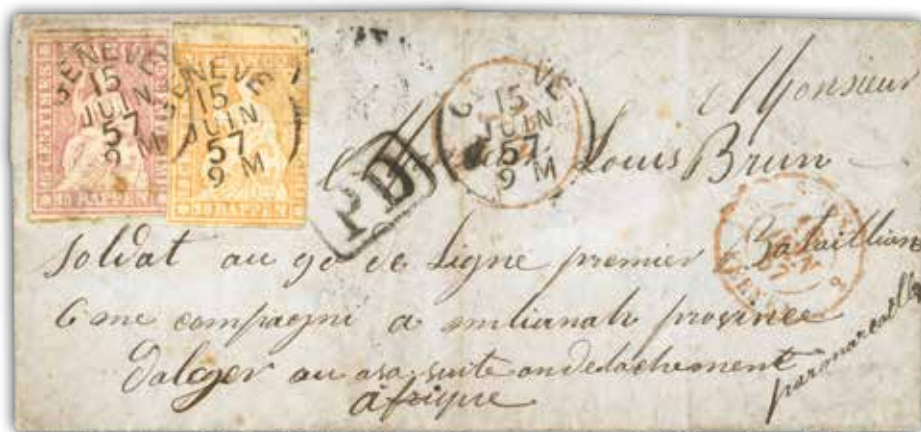 GENÈVE
15
JUIN
57
9 M
GENÈVE
15
JUIN
57
9 M
15 RAPPEN
RAPPEN
PD
GENÈVE
15
JUIN
57
9 M
Monsieur
Louis Brun
soldat au 90 de Ligne premier Bataillian
6 me compagni a milianah province
Dalger au suite en detachement
afrique
par marseille